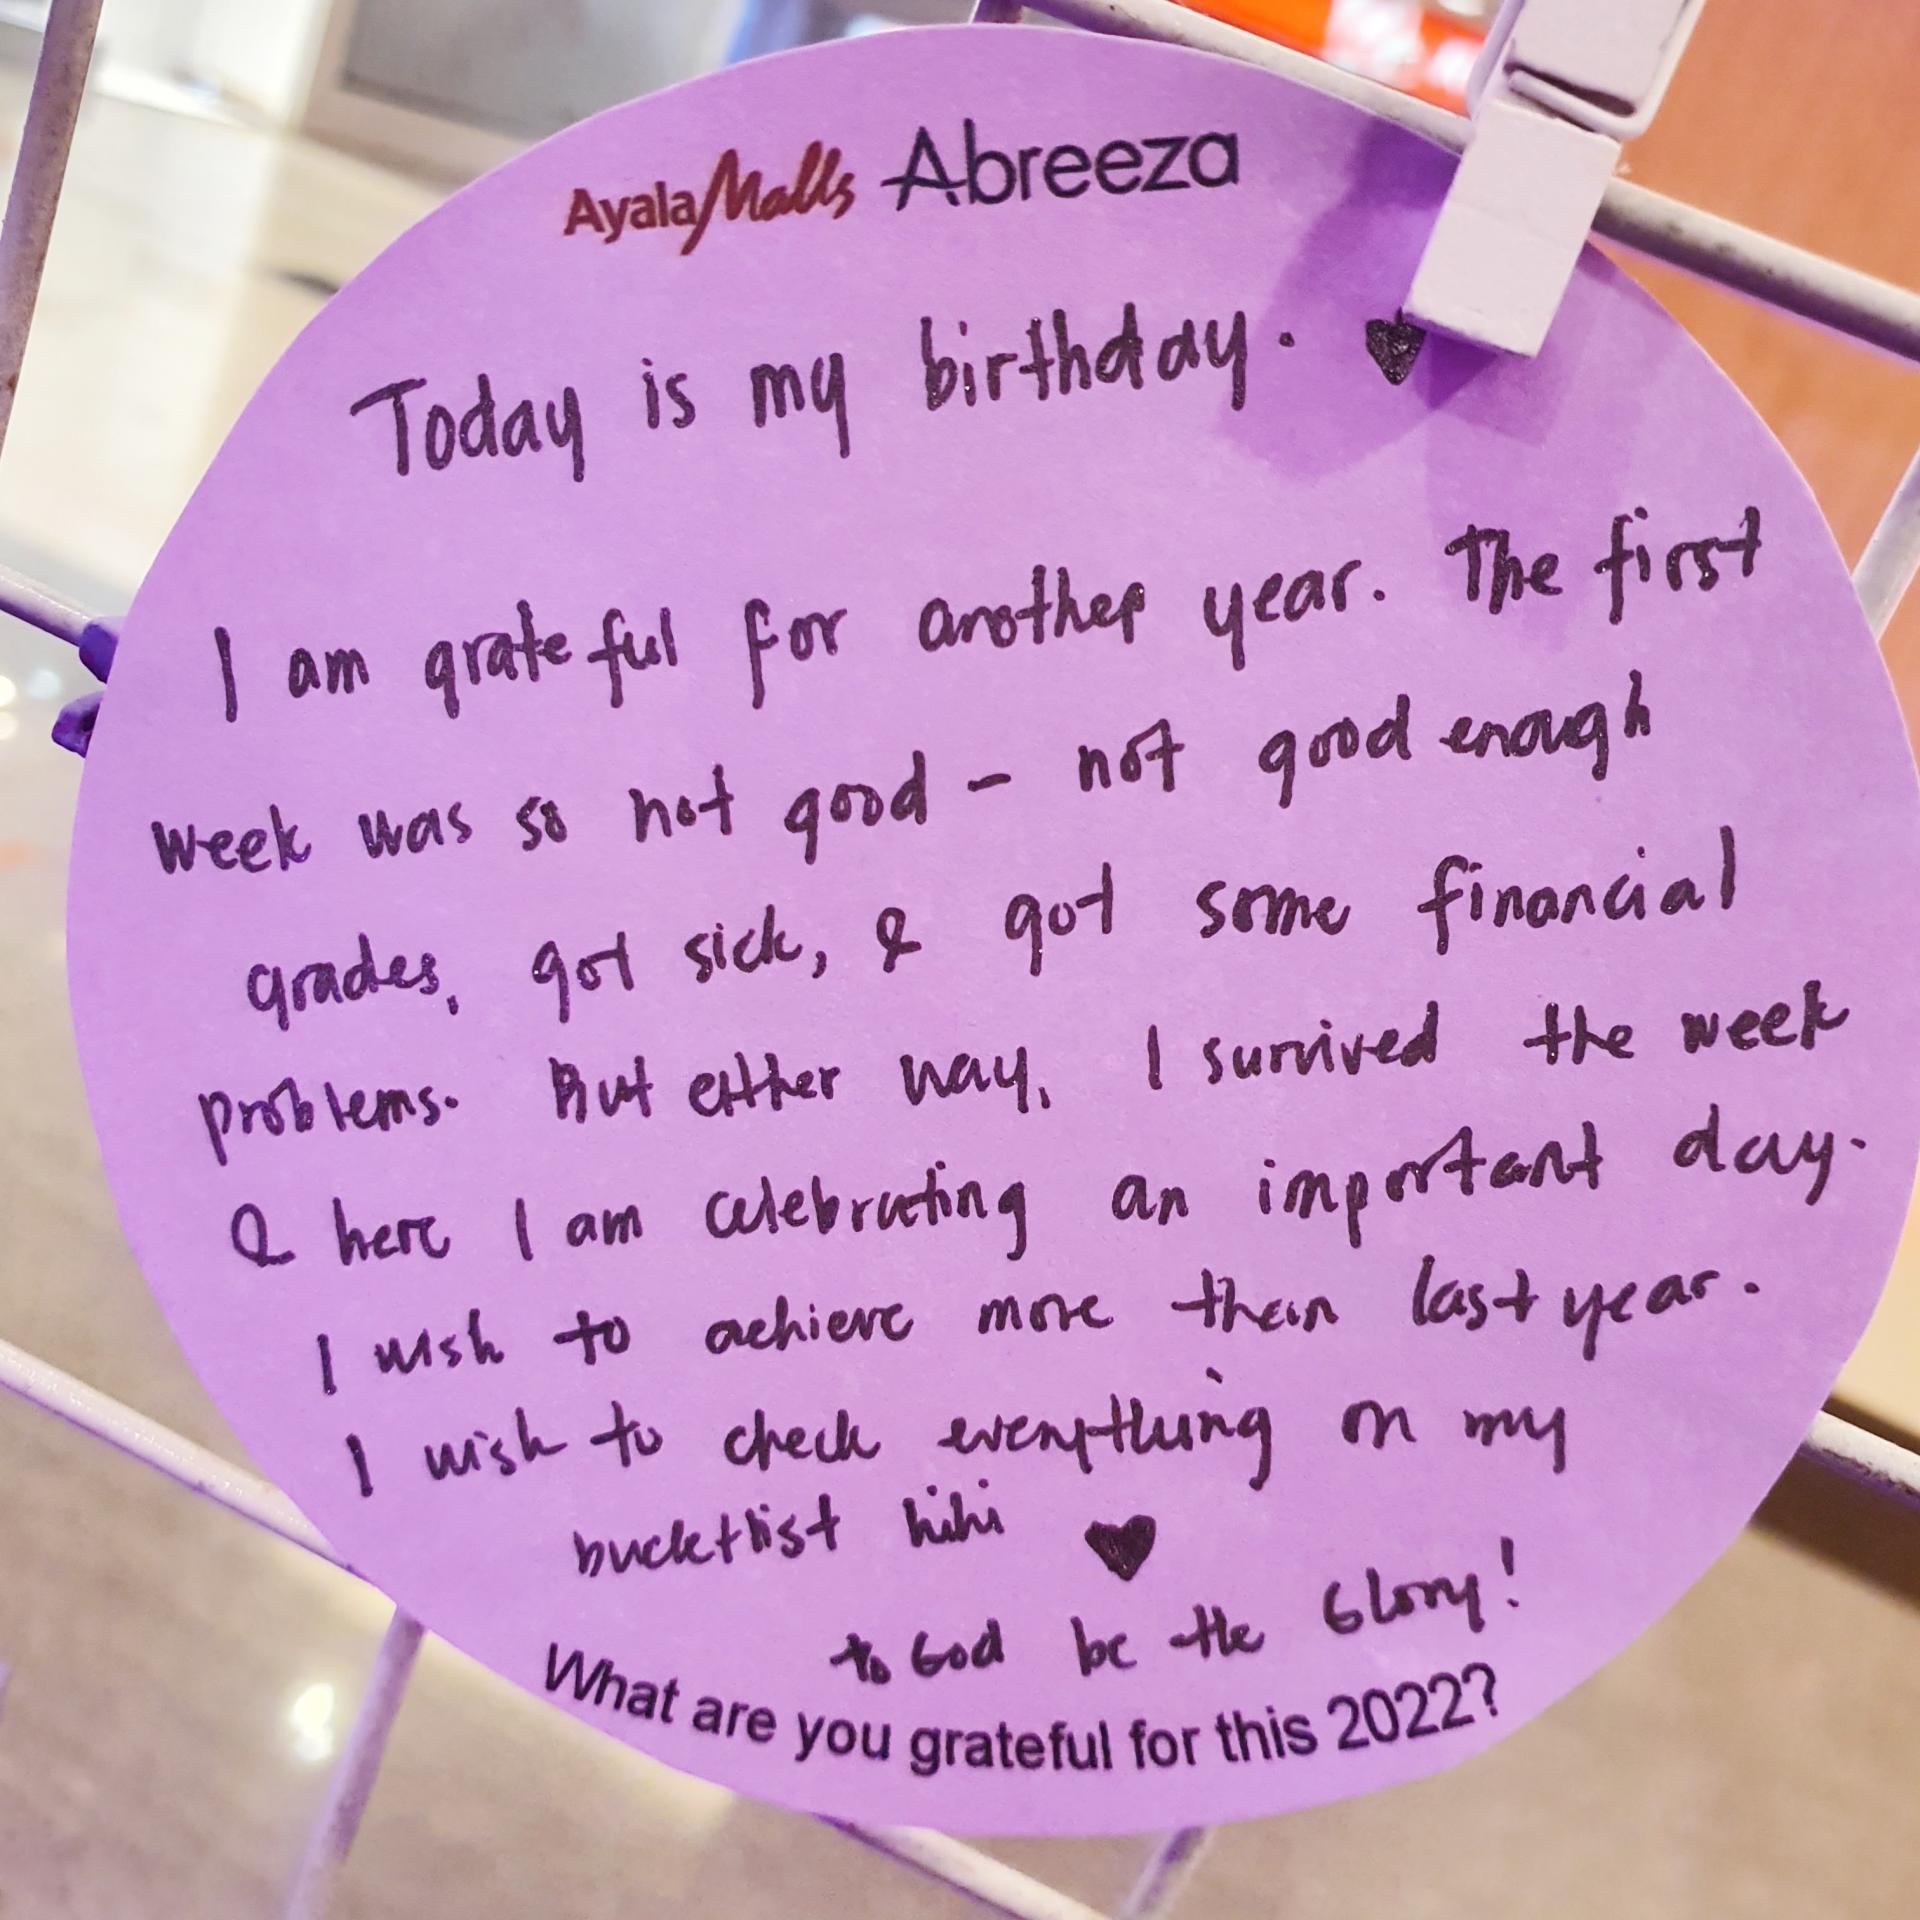 AyalaMalls Abreeza
Today is my birthday. ♥
I am grateful for another year. The first
week was so not good - not good enough
grades, got sick, & got some financial
problems. But either way, I survived the week
& here I am celebrating an important day.
I wish to achieve more than last year.
I wish to check everything on my
bucketlist hihi ♥
to God be the Glory!
What are you grateful for this 2022?